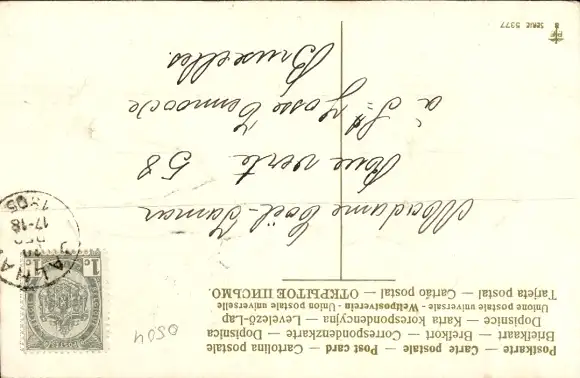 Postkarte — Carte postale — Post card — Cartolina postale
Briefkaart — Brefkort — Correspondenzkarte — Dopisnica
Dopisnice — Karta korespondencyjna — Levelező-Lap
Union postale universelle - Weltpostverein - Unione postale universale
Tarjeta postal — Cartão postal — ОТКРЫТОЕ ПИСЬМО.
1c 1c
17-18
1905
0504
Madame
Rue verte 58
à St Josse
Bruxelles.
SERIE 5377